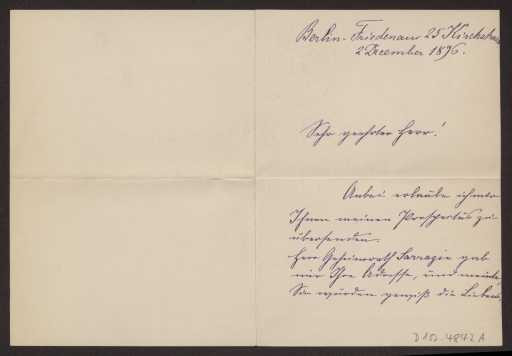 Berlin-Friedenau 25 Kirchstrasse
2 December 1896.
Sehr geehrter Herr!
Anbei erlaube ich mir
Ihnen meinen Prospectus zu
übersenden.
Herr Geheimrath Sarrazin gab
mir Ihre Adresse, und meinte
Sie würden gewiß die Liebens
D 150. 4842 A